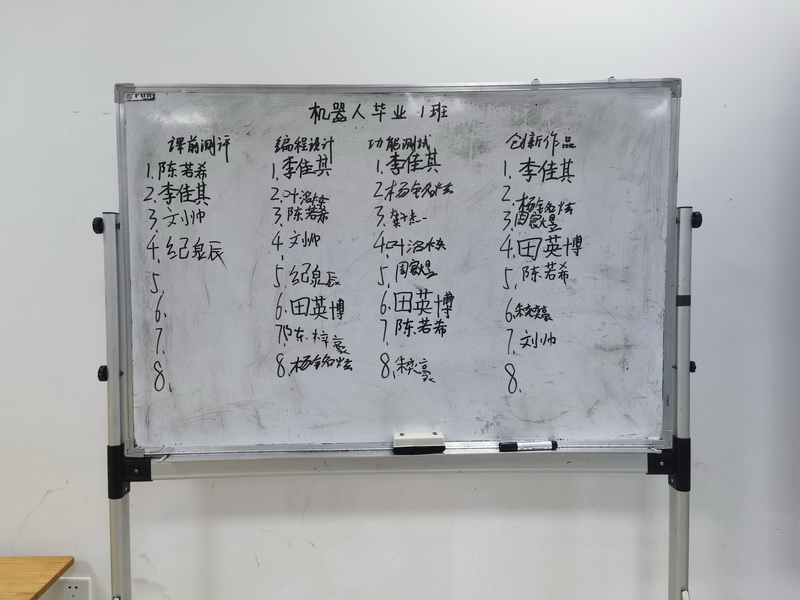 机器人毕业1班
课前测评
1.陈若希
2.李佳其
3.文小帅
4.纪泉辰
5.
6.
7.
8.
编程设计
1.李佳其
2.叶
3.陈若希
4.刘帅
5.纪泉辰
6.田英博
7.陈梓豪
8.杨
功能测试
1.李佳其
2.杨
3.
4.叶
5.周
6.田英博
7.陈若希
8.朱奕豪
创新作品
1.李佳其
2.杨
3.周
4.田英博
5.陈若希
6.朱奕豪
7.刘帅
8.